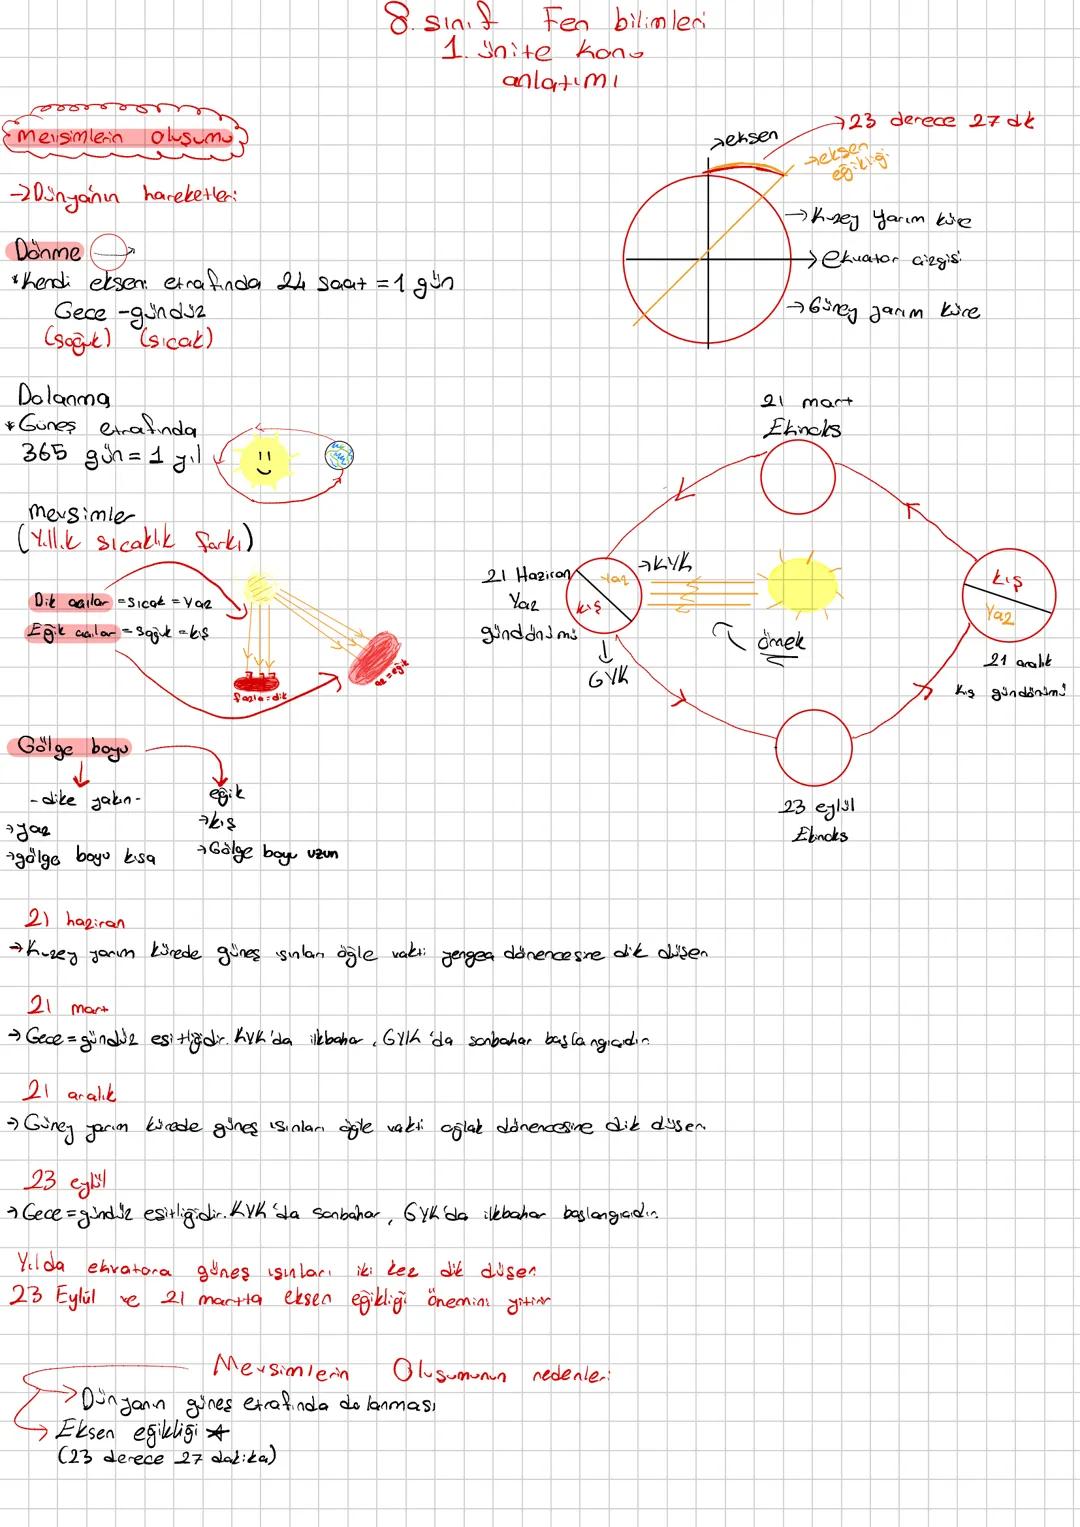 8. sınıf Fen bilimleri
1. ünite konu
anlatımı
Mevsimlerin oluşumu
→Dünyanın hareketleri
Dönme
*Kendi ekseni etrafında 24 saat = 1 gün
Gece - gündüz
(soğuk) (sıcak)
→eksen
→23 derece 27 dk
→eksen
eğikliği
→Kuzey Yarım küre
→Ekvator çizgisi
→Güney yarım küre
Dolanma
*Güneş etrafında
365 gün = 1 yıl
mevsimler
(Yıllık sıcaklık farkı)
Dik açılar = Sıcak = Yaz
Eğik açılar = Soğuk = kış
fazla = dik
az = eğik
21 mart
Ekinoks
21 Haziran
Yaz
gündönümü
Yaz
kış
→KYK
GYK
örnek
kış
Yaz
21 aralık
kış gündönümü
23 eylül
Ekinoks
Gölge boyu
- dike yakın -
→yaz
→gölge boyu kısa
eğik
→kış
→Gölge boyu uzun
21 haziran
→Kuzey yarım kürede güneş ışınları öğle vakti yengeç dönencesine dik düşer
21 mart
→Gece = gündüz eşitliğidir. KYK'da ilkbahar, GYK'da sonbahar başlangıcıdır.
21 aralık
→Güney yarım kürede güneş ışınları öğle vakti oğlak dönencesine dik düşer.
23 eylül
→Gece = gündüz eşitliğidir. KYK'da sonbahar, GYK'da ilkbahar başlangıcıdır.
Yılda ekvatora güneş ışınları iki kez dik düşer
23 Eylül ve 21 martta eksen eğikliği önemini yitirir
Mevsimlerin Oluşumunun nedenleri
→Dünyanın güneş etrafında dolanması
→Eksen eğikliği ★
(23 derece 27 dakika)